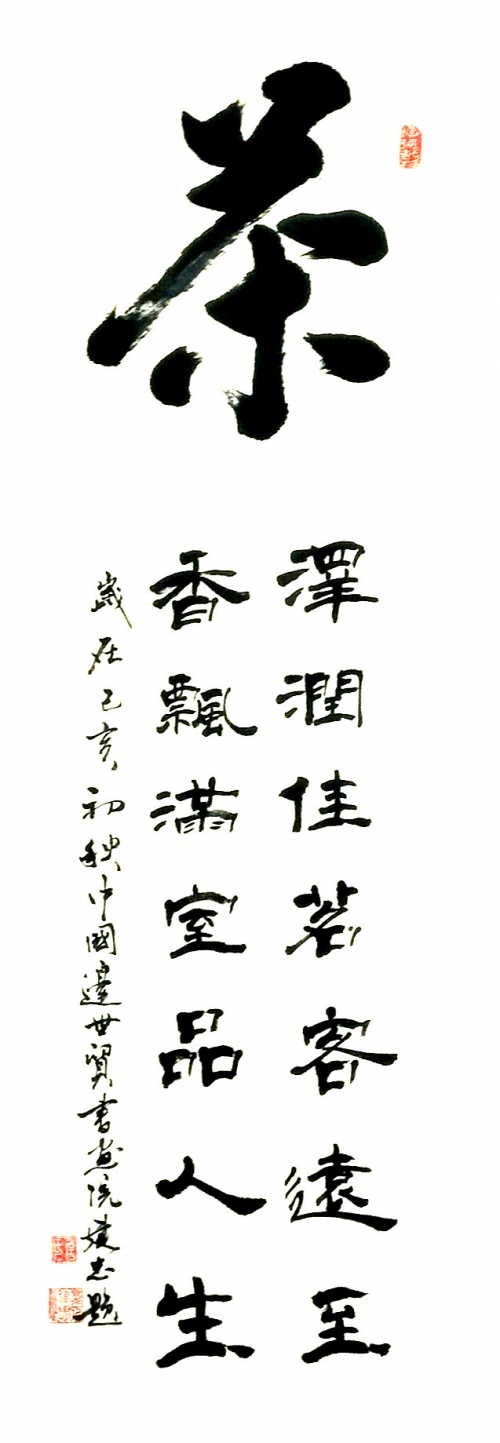 茶
澤潤佳茗客遠至
香飄滿室品人生
歲在己亥初秋中國邊世賢書畫院建忠題